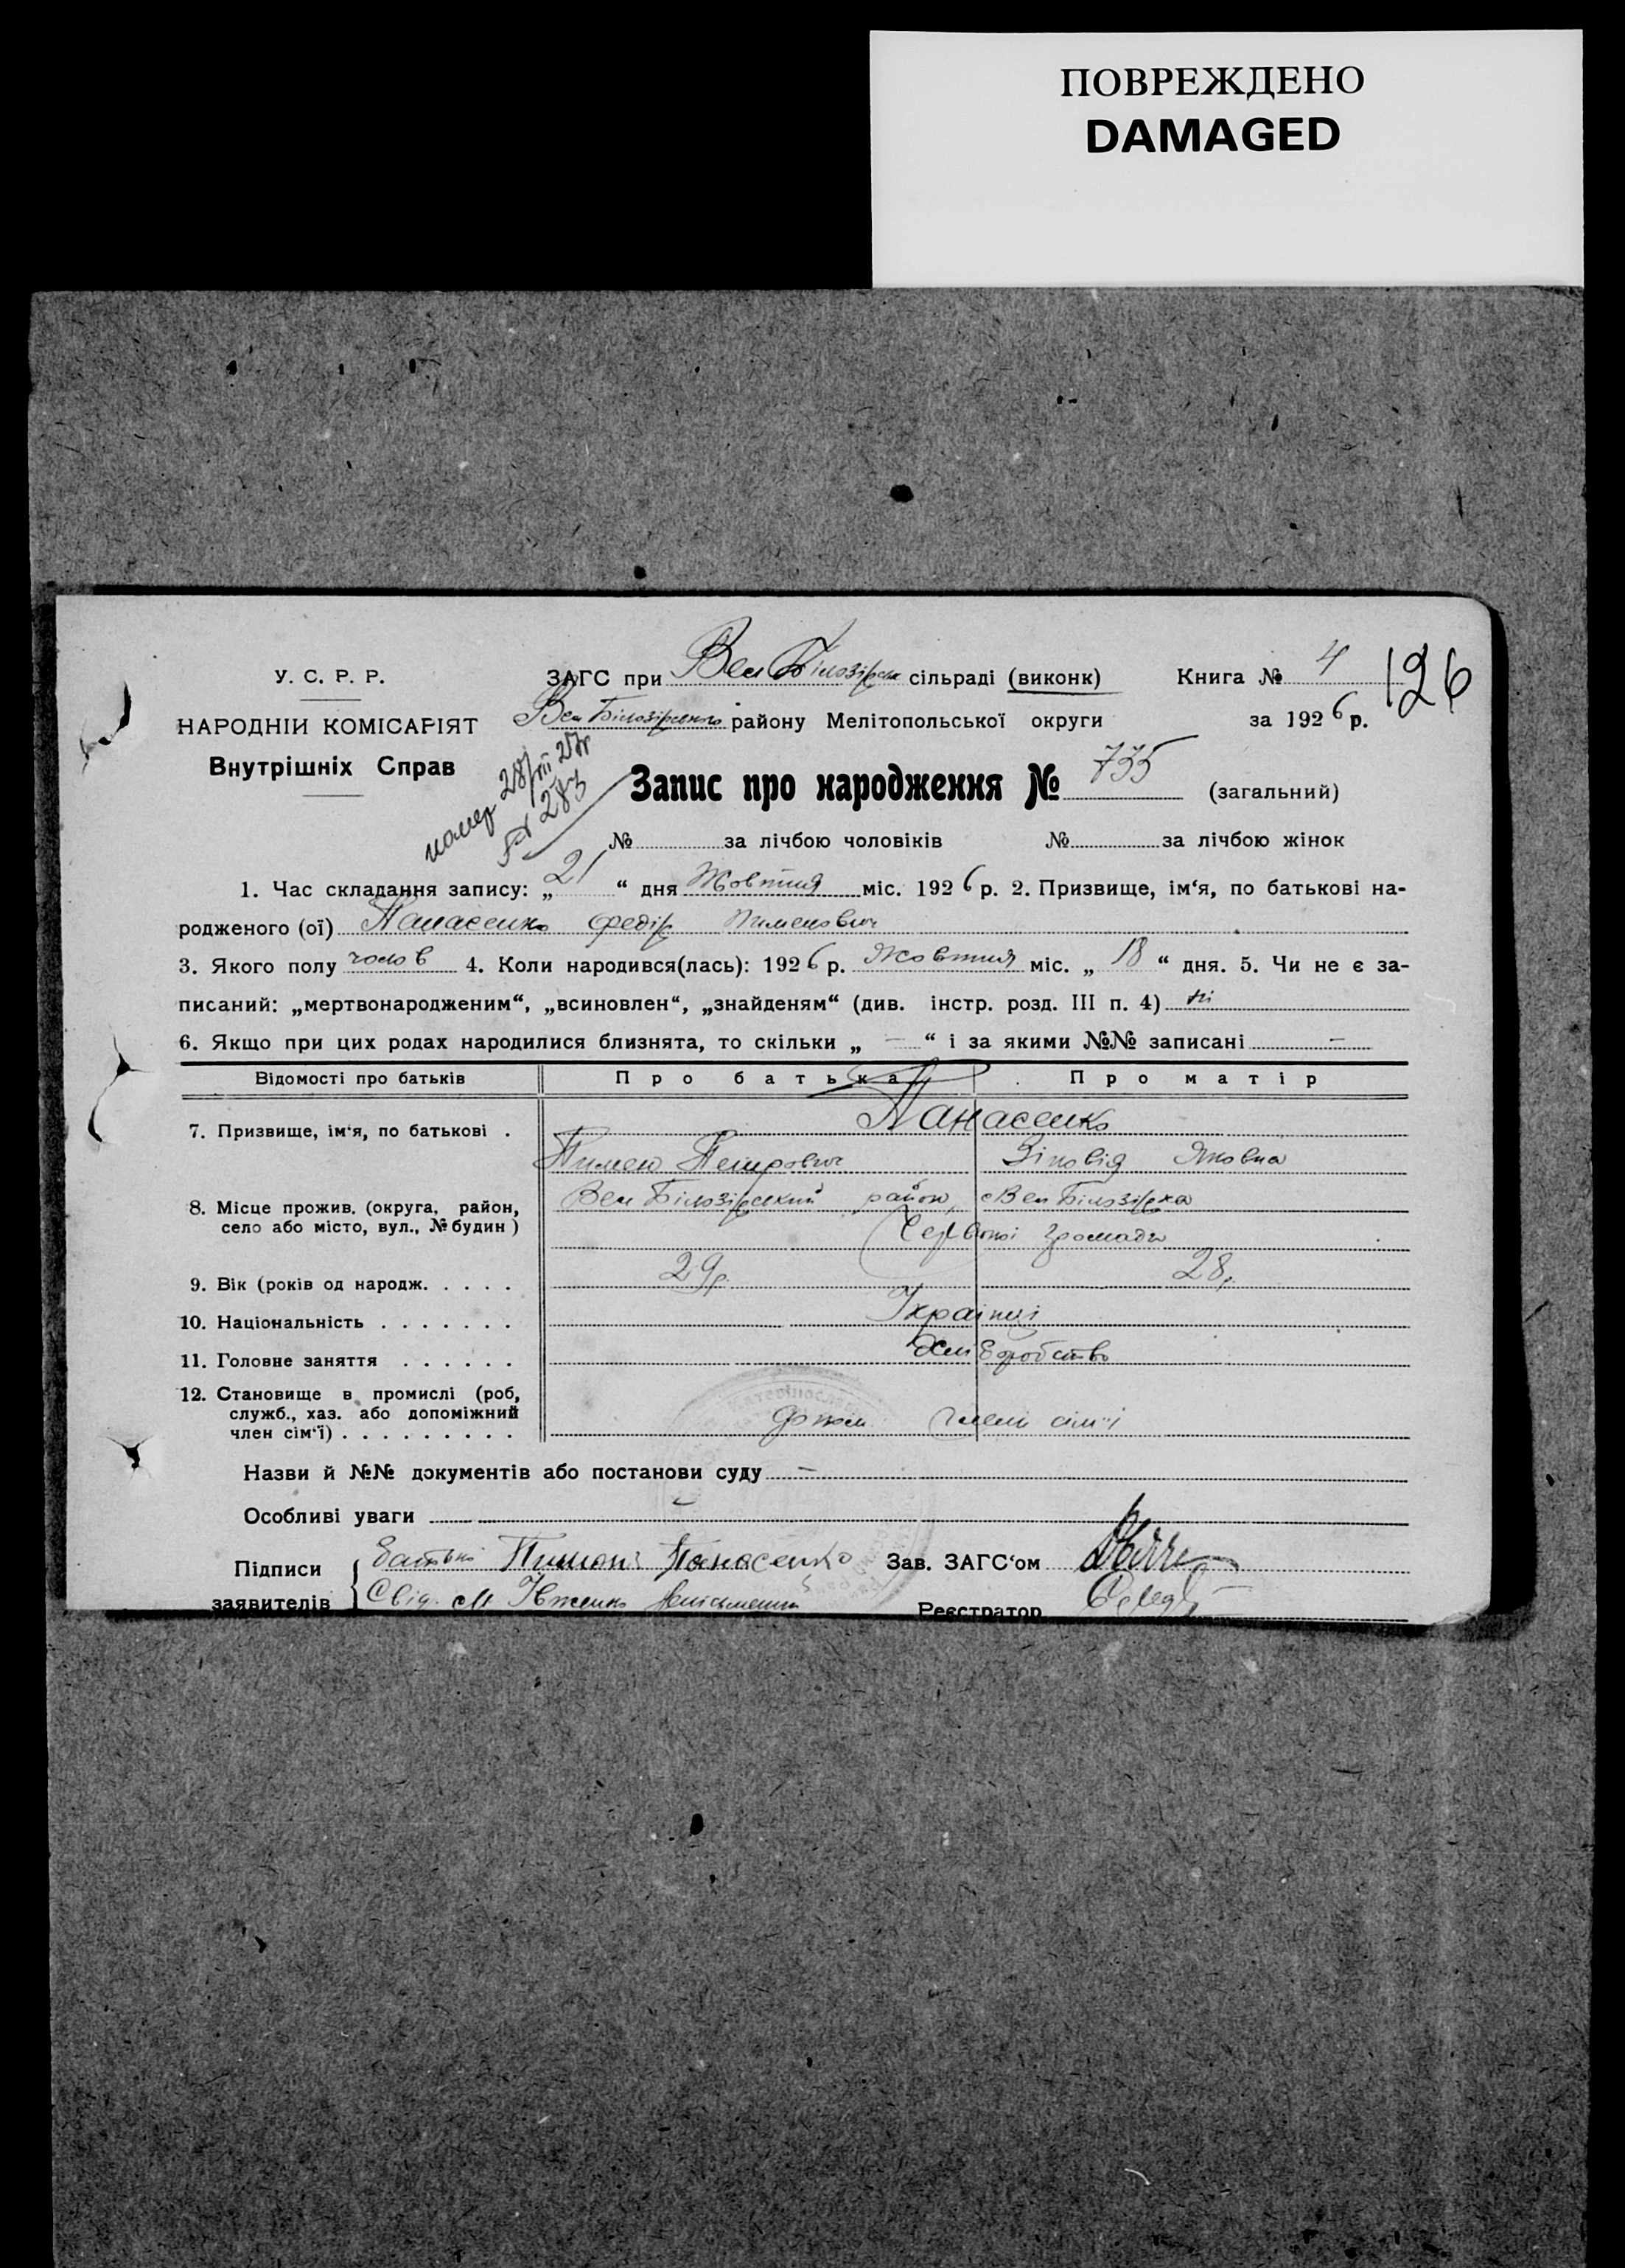 ПОВРЕЖДЕНО
DAMAGED
У. С. Р. Р.
НАРОДНІЙ КОМІСАРІЯТ
Внутрішніх Справ
ЗАГС при Вел Білозірськ сільраді (виконк)
Книга № 4
126
Вел Білозірського району Мелітопольської округи
за 1926 р.
помер 28/III 27 г
№ 283
Запис про народження № 735 (загальний)
№ за лічбою чоловіків № за лічбою жінок
1. Час складання запису: „ 21 “ дня Жовтня міс. 1926 р. 2. Призвище, ім‘я, по батькові на-
родженого (ої) Панасенко Федір Пименович
3. Якого полу чолов 4. Коли народився(лась): 1926 р. Жовтня міс. „ 18 “ дня. 5. Чи не є за-
писаний: „мертвонародженим“, „всиновлен“, „знайденям“ (див. інстр. розд. III п. 4) ні
6. Якщо при цих родах народилися близнята, то скільки „ — “ і за якими №№ записані —
Відомості про батьків Про батька Про матір
7. Призвище, ім‘я, по батькові . Панасенко
Пимен Петрович Зіновід Яковна
8. Місце прожив. (округа, район, Вел Білозірський район, с Вел Білозірка
село або місто, вул., № будин ) Червоної громади
9. Вік (років од народж. . . . . 29 р. 28 р.
10. Національність . . . . . . . Українці
11. Головне заняття . . . . . . Хліборобство
12. Становище в промислі (роб,
служб., хаз. або допоміжний
член сім‘ї) . . . . . . . . . член сім‘ї
Назви й №№ документів або постанови суду —
Особливі уваги —
Підписи батько Панасенко Зав. ЗАГС‘ом
заявителів Свід. Реєстратор